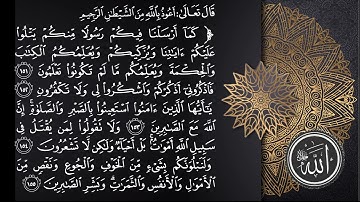 قَالَ تَعَالَى: أَعُوذُ بِاللَّهِ مِنَ الشَّيْطَانِ الرَّجِيمِ
﴿ كَمَا أَرْسَلْنَا فِيكُمْ رَسُولًا مِّنكُمْ يَتْلُوا
عَلَيْكُمْ ءَايَٰتِنَا وَيُزَكِّيكُمْ وَيُعَلِّمُكُمُ الْكِتَٰبَ
وَالْحِكْمَةَ وَيُعَلِّمُكُم مَّا لَمْ تَكُونُوا تَعْلَمُونَ ١٥١
فَاذْكُرُونِي أَذْكُرْكُمْ وَاشْكُرُوا لِي وَلَا تَكْفُرُونِ ١٥٢
يَٰأَيُّهَا الَّذِينَ ءَامَنُوا اسْتَعِينُوا بِالصَّبْرِ وَالصَّلَوٰةِ إِنَّ
اللَّهَ مَعَ الصَّٰبِرِينَ ١٥٣ وَلَا تَقُولُوا لِمَن يُقْتَلُ فِي
سَبِيلِ اللَّهِ أَمْوَٰتٌ بَلْ أَحْيَاءٌ وَلَٰكِن لَّا تَشْعُرُونَ ١٥٤
وَلَنَبْلُوَنَّكُم بِشَيْءٍ مِّنَ الْخَوْفِ وَالْجُوعِ وَنَقْصٍ مِّنَ
الْأَمْوَٰلِ وَالْأَنفُسِ وَالثَّمَرَٰتِ وَبَشِّرِ الصَّٰبِرِينَ ١٥٥
الله